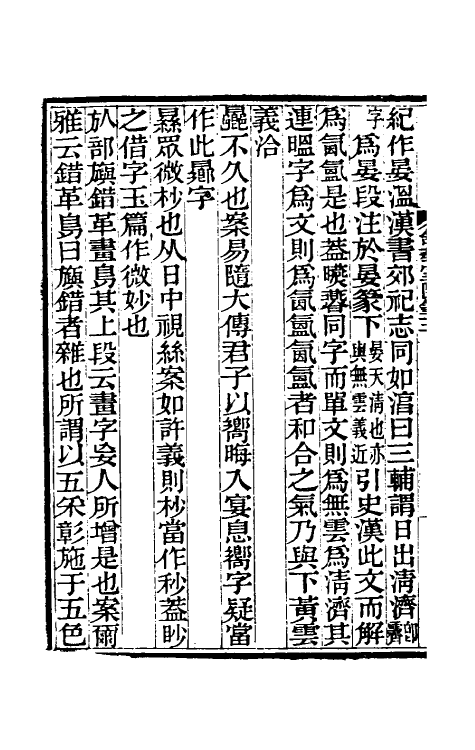 紀作晏溫漢書郊祀志同如湻曰三輔謂日出淸濟
字爲晏段注於晏篆下晏天淸也亦與無雲義近引史漢此文而解
爲氤氳是也葢曣㬫同字而單文則爲無雲爲淸濟其
連㬈字爲文則爲氤氳氤氳者和合之氣乃與下黃雲
義洽
曏不久也案易隨大傳君子以嚮晦入宴息嚮字疑當
作此曏字
㬎眾微杪也从日中視絲案如許義則杪當作秒葢眇
之借字玉篇作微妙也
㫃部旟錯革畫鳥其上段云畫字妄人所增是也案爾
雅云錯革鳥曰旟錯者雜也所謂以五采彰施于五色